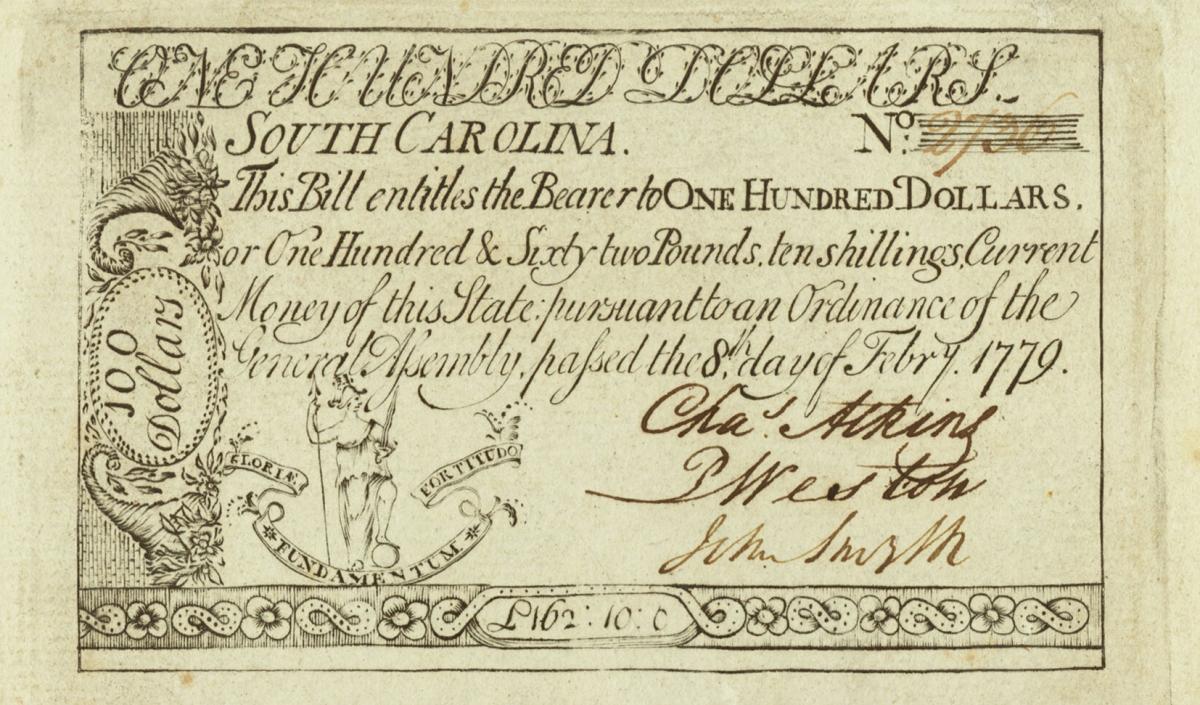 ONE HUNDRED DOLLARS.
SOUTH CAROLINA. Nº. 2730
This Bill entitles the Bearer to ONE HUNDRED DOLLARS.
or One Hundred & Sixty two Pounds, ten shillings, Current
Money of this State: pursuant to an Ordinance of the
General Assembly, passed the 8th. day of Febry. 1779.
100
Dollars
Chas. Atkins
P Weston
John Smyth
GLORIÆ
FORTITUDO
* FUNDAMENTUM *
£162:10:0